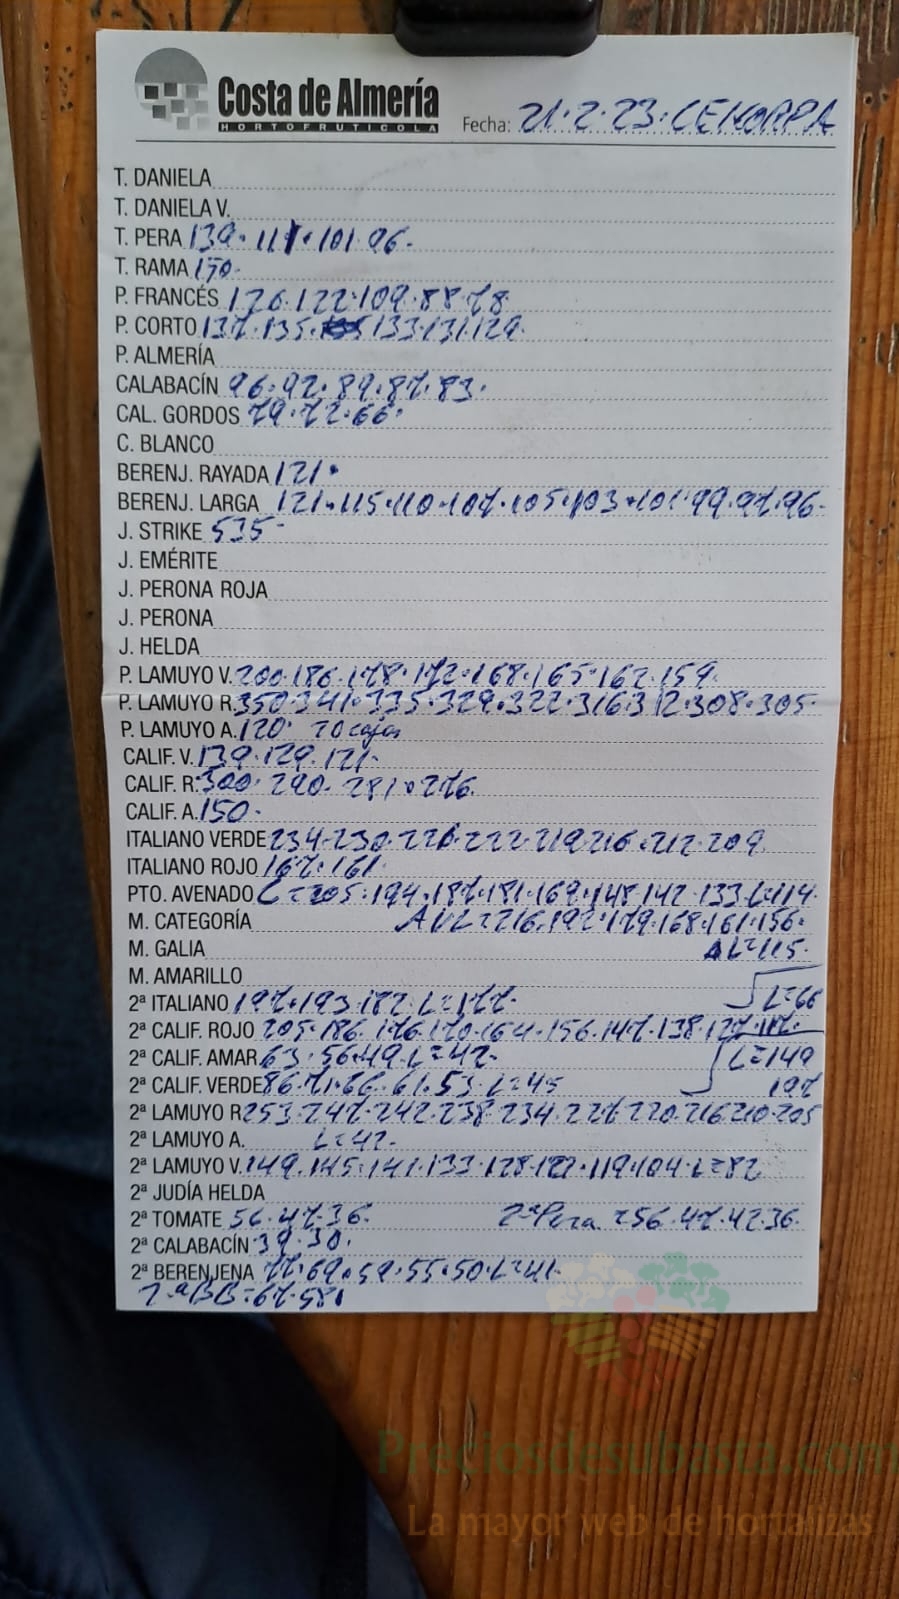 Costa de Almería
HORTOFRUTICOLA
Fecha: 21·2·23·CEHORPA
T. DANIELA
T. DANIELA V.
T. PERA 139·111·101·96·
T. RAMA 150·
P. FRANCÉS 126·122·109·88·78
P. CORTO 137·135· 133·131·129
P. ALMERÍA
CALABACÍN 96·92·89·87·83·
CAL. GORDOS 79·72·66·
C. BLANCO
BERENJ. RAYADA 121·
BERENJ. LARGA 121·115·110·107·105·103·101·99·97·96·
J. STRIKE 535-
J. EMÉRITE
J. PERONA ROJA
J. PERONA
J. HELDA
P. LAMUYO V. 200·186·178·172·168·165·162·159·
P. LAMUYO R. 350·341·335·329·322·316·312·308·305·
P. LAMUYO A. 120· 20 cajas
CALIF. V. 139·129·121·
CALIF. R. 300·290·281·276·
CALIF. A. 150·
ITALIANO VERDE 234·230·226·222·219·216·212·209
ITALIANO ROJO 167·161·
PTO. AVENADO L=205·194·187·181·169·148·142·133·L=114·
M. CATEGORÍA AVL=216·192·179·168·161·156·
M. GALIA AL=115·
M. AMARILLO L=66
2ª ITALIANO 197·193·182·L=177·
2ª CALIF. ROJO 205·186·176·170·164·156·147·138·127·117·
2ª CALIF. AMAR 63·56·49·L=42· L=149
2ª CALIF. VERDE 86·71·66·61·53·L=45 197
2ª LAMUYO R 253·247·242·238·234·227·220·216·210·205
2ª LAMUYO A. L=42·
2ª LAMUYO V. 149·145·141·133·128·122·119·104·L=82
2ª JUDÍA HELDA
2ª TOMATE 56·47·36· 2ª Pera =56·47·42·36·
2ª CALABACÍN 39·30·
2ª BERENJENA 77·69·59·55·50·L=41·
2ª BB=67·58·
Preciosdesubasta.com
La mayor web de hortalizas